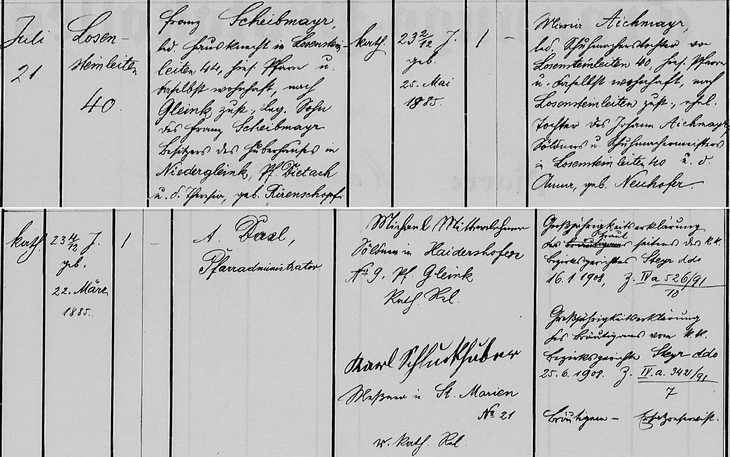 Juli
21
Losen-
steinleiten
40.
Franz Scheibmayr,
led. Hausknecht in Losenstein-
leiten 44, hies. Pfarre u.
daselbst wohnhaft, nach
Gleink zust., leg. Sohn
des Franz Scheibmayr
Besitzers des Huberhauses in
Niedergleink, Pf. Dietach
u. d. Theresia, geb. Kirenschopfer
kath.
23 2/12 J.
geb.
25. Mai
1885.
1
–
Maria Aichmayr,
led. Schuhmacherstochter von
Losensteinleiten 40, hies. Pfarre
u. daselbst wohnhaft, nach
Losensteinleiten zust., ehel.
Tochter des Johann Aichmayr,
Söldners u. Schuhmachermeisters
in Losensteinleiten 40 u. d.
Anna, geb. Neuhofer.
kath.
23 4/12 J.
geb.
22. März
1885.
1
–
A. Dasl,
Pfarradministrator
Michael Mitterlehner
Söldner in Haidershofen
No 9, Pf. Gleink
Kath. Rel.
Karl Schluckhuber
Meßner in St. Marien
No 21
r. kath. Rel.
Großjährigkeitserklärung
der Braut seitens des k.k.
Bezirksgerichtes Steyr ddo
16.1.1908, Z. IV a 526/91
10
Großjährigkeitserklärung
des Bräutigams vom k.k.
Bezirksgerichte Steyr ddo
25.6.1908. Z. IV a. 342/91
7
Bräutigam – Ersatzreservist.